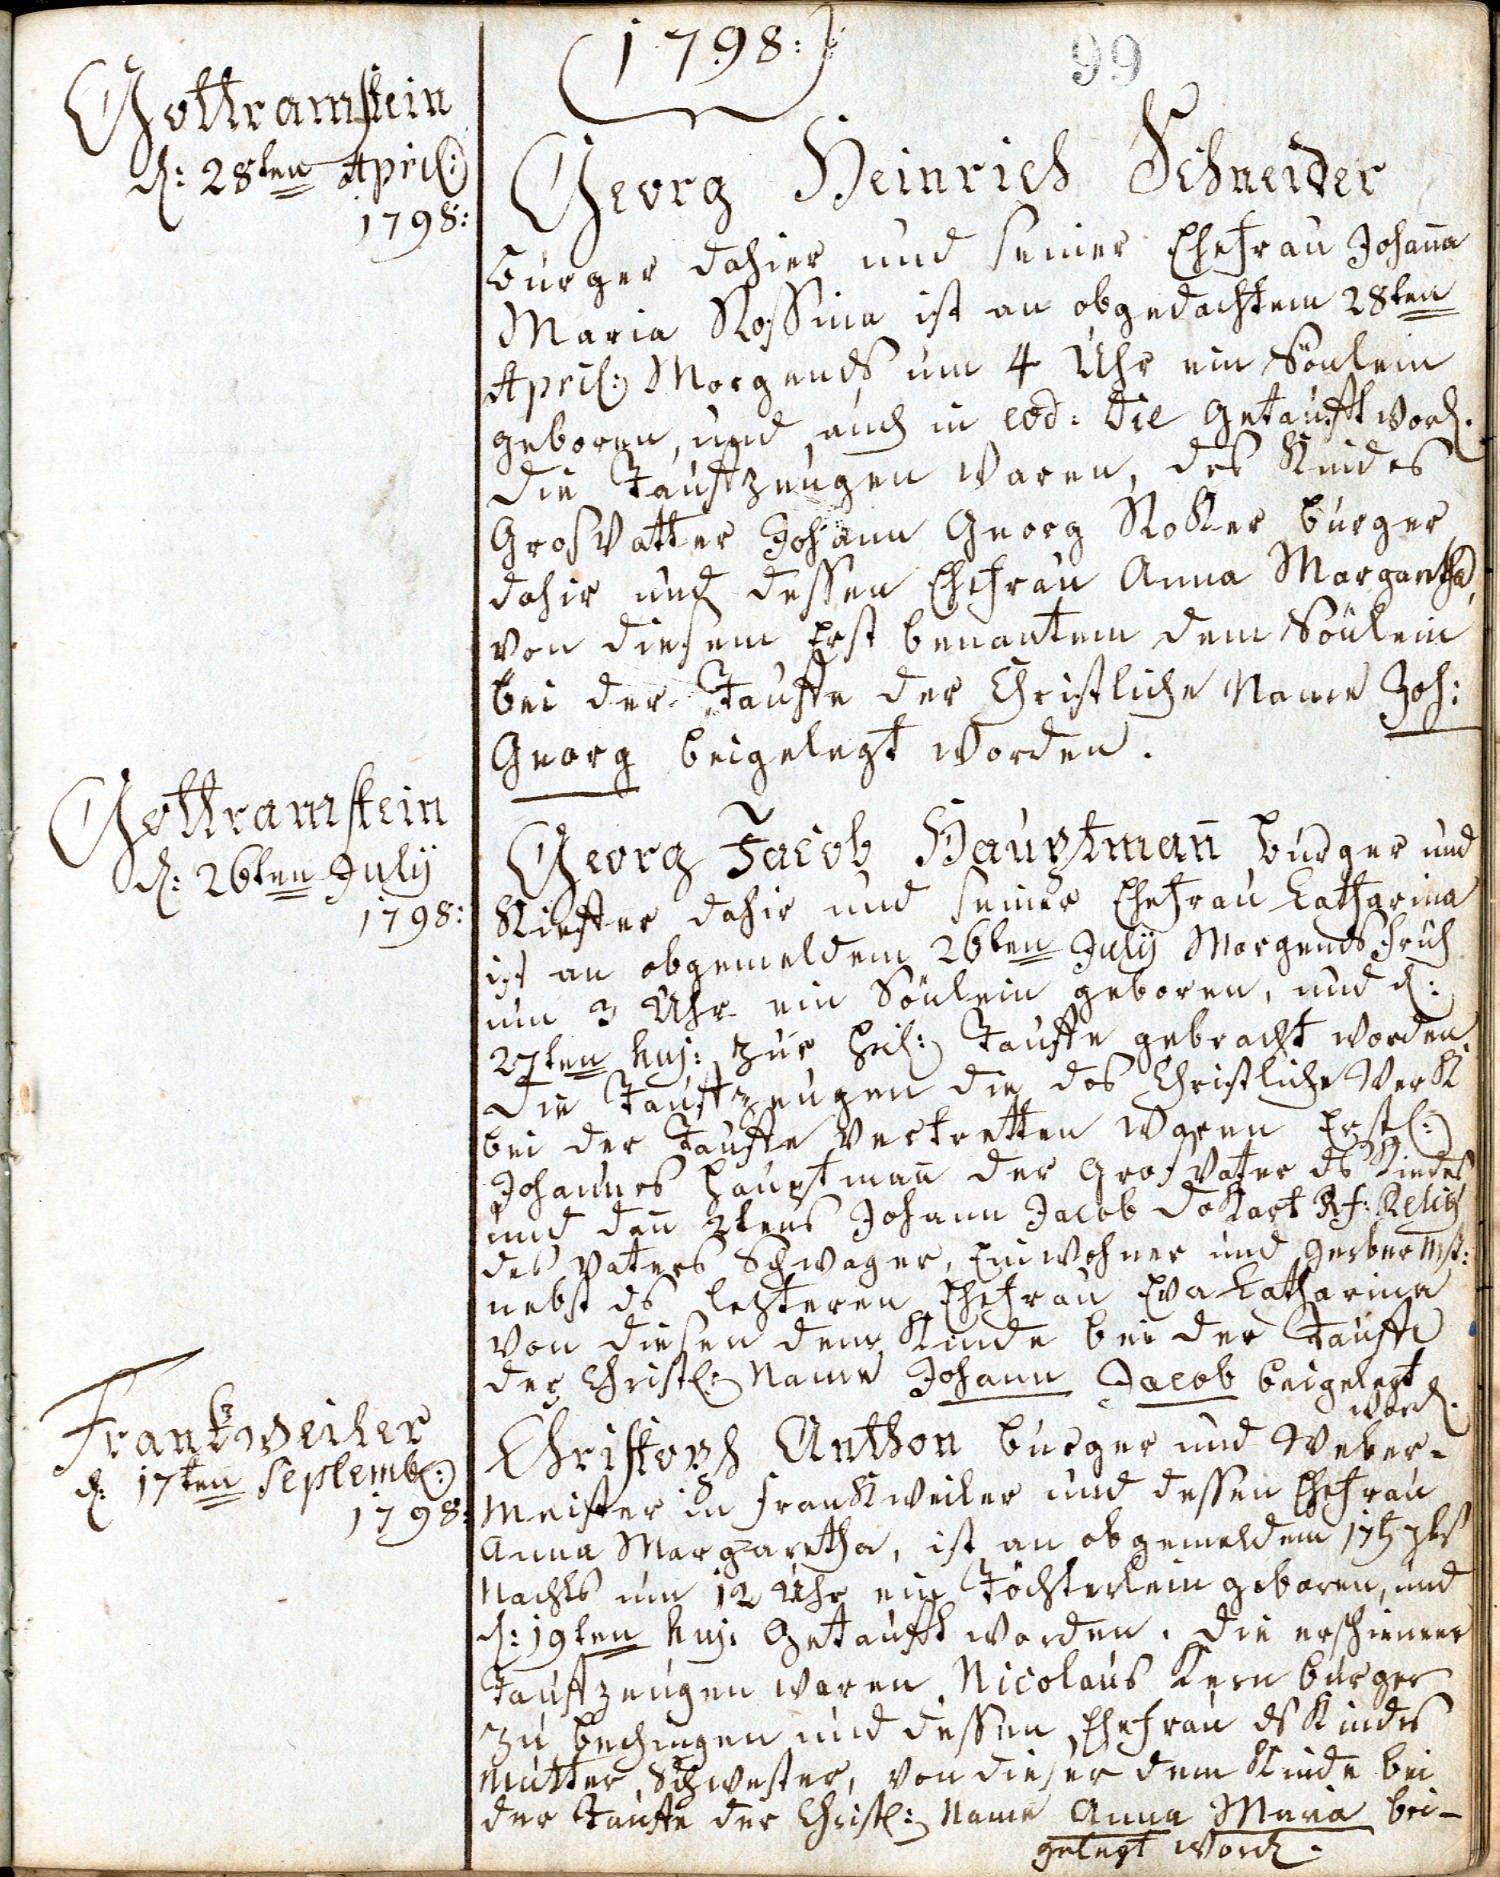 1798:
99
Gottramstein
d: 28ten April:
1798:
Georg Heinrich Schneider
burger dahier und seiner Ehefrau Johaña
Maria Rossina ist an obgedachtem 28ten
April: Morgends um 4 Uhr ein Sönlein
geboren, und auch in eod: die getaufft word.
die Taufzeugen waren, des Kindes
Grosvatter Johann Georg Roker burger
dahir und dessen Ehefrau Anna Margaretha,
von diesem Erst benantem dem Sönlein
bei der Tauffe der Christliche Name Joh:
Georg beigelegt worden.
Gottramstein
d: 26ten Julÿ
1798:
Georg Jacob Hauptmañ burger und
Kieffer dahir und seiner Ehefrau Catharina
ist an obgemeldem 26ten Julÿ Morgends früh
um 3 Uhr ein Sönlein geboren, und d:
27ten huj: zur heil: Tauffe gebracht worden.
Die Taufzeugen die das Christliche Werk
bei der Tauffe vertretten waren Erstl:
Johannes Hauptmañ der Grosvater ds Kindes
und dañ 2tens Johann Jacob Rf: Relig
des Vaters Schwager, Einwohner und Gerber mst:
nebst ds letzteren Ehefrau Eva Catharina
von diesen dem Kinde bei der Tauffe
der Christl: Name Johann Jacob beigelegt
word.
Frankweiler
d: 17ten Septembr:
1798:
Christoph Anthon burger und Weber-
meister in Frankweiler und dessen Ehefrau
Anna Margaretha, ist an obgemeldem 17t
Nachts um 12 Uhr ein Töchterlein geboren, und
d: 19ten huj. getaufft worden. Die erschienene
Taufzeugen waren Nicolaus Kern burger
zu bechingen und dessen Ehefrau ds Kindes
Mutter Schwester, von dieser dem Kinde bei
der Tauffe der Christl: Name Anna Maria bei-
gelegt word.